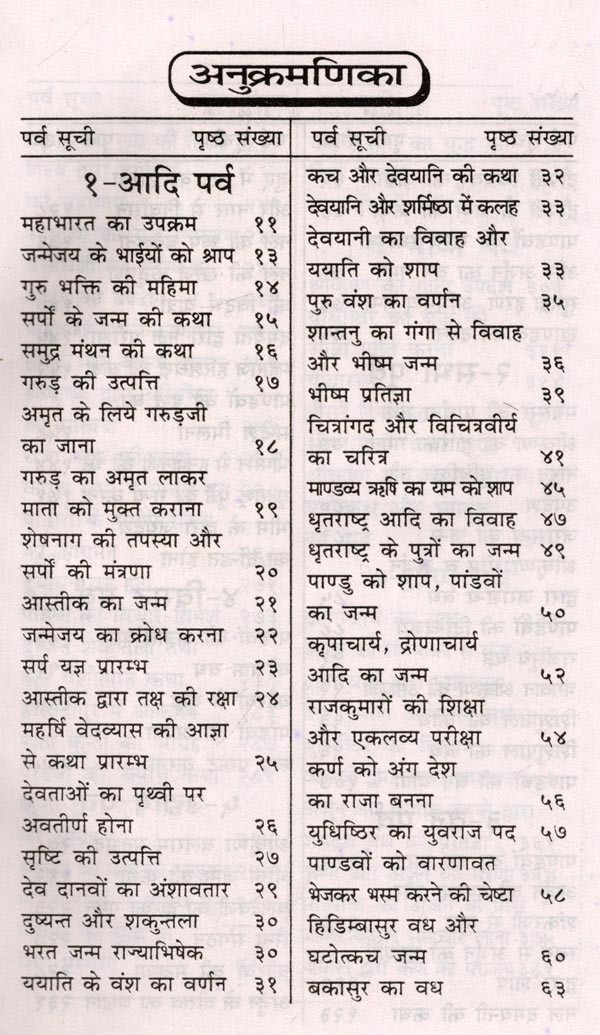 अनुक्रमणिका
पर्व सूची पृष्ठ संख्या
१-आदि पर्व
महाभारत का उपक्रम ११
जन्मेजय के भाईयों को श्राप १३
गुरु भक्ति की महिमा १४
सर्पों के जन्म की कथा १५
समुद्र मंथन की कथा १६
गरुड़ की उत्पत्ति १७
अमृत के लिये गरुड़जी
का जाना १८
गरुड़ का अमृत लाकर
माता को मुक्त कराना १९
शेषनाग की तपस्या और
सर्पों की मंत्रणा २०
आस्तीक का जन्म २१
जन्मेजय का क्रोध करना २२
सर्प यज्ञ प्रारम्भ २३
आस्तीक द्वारा तक्ष की रक्षा २४
महर्षि वेदव्यास की आज्ञा
से कथा प्रारम्भ २५
देवताओं का पृथ्वी पर
अवतीर्ण होना २६
सृष्टि की उत्पत्ति २७
देव दानवों का अंशावतार २९
दुष्यन्त और शकुन्तला ३०
भरत जन्म राज्याभिषेक ३०
ययाति के वंश का वर्णन ३१
पर्व सूची पृष्ठ संख्या
कच और देवयानि की कथा ३२
देवयानि और शर्मिष्ठा में कलह ३३
देवयानी का विवाह और
ययाति को शाप ३३
पुरु वंश का वर्णन ३५
शान्तनु का गंगा से विवाह
और भीष्म जन्म ३६
भीष्म प्रतिज्ञा ३९
चित्रांगद और विचित्रवीर्य
का चरित्र ४१
माण्डव्य ऋषि का यम को शाप ४५
धृतराष्ट्र आदि का विवाह ४७
धृतराष्ट्र के पुत्रों का जन्म ४९
पाण्डु को शाप, पांडवों
का जन्म ५०
कृपाचार्य, द्रोणाचार्य
आदि का जन्म ५२
राजकुमारों की शिक्षा
और एकलव्य परीक्षा ५४
कर्ण को अंग देश
का राजा बनना ५६
युधिष्ठिर का युवराज पद ५७
पाण्डवों को वारणावत
भेजकर भस्म करने की चेष्टा ५८
हिडिम्बासुर वध और
घटोत्कच जन्म ६०
बकासुर का वध ६३